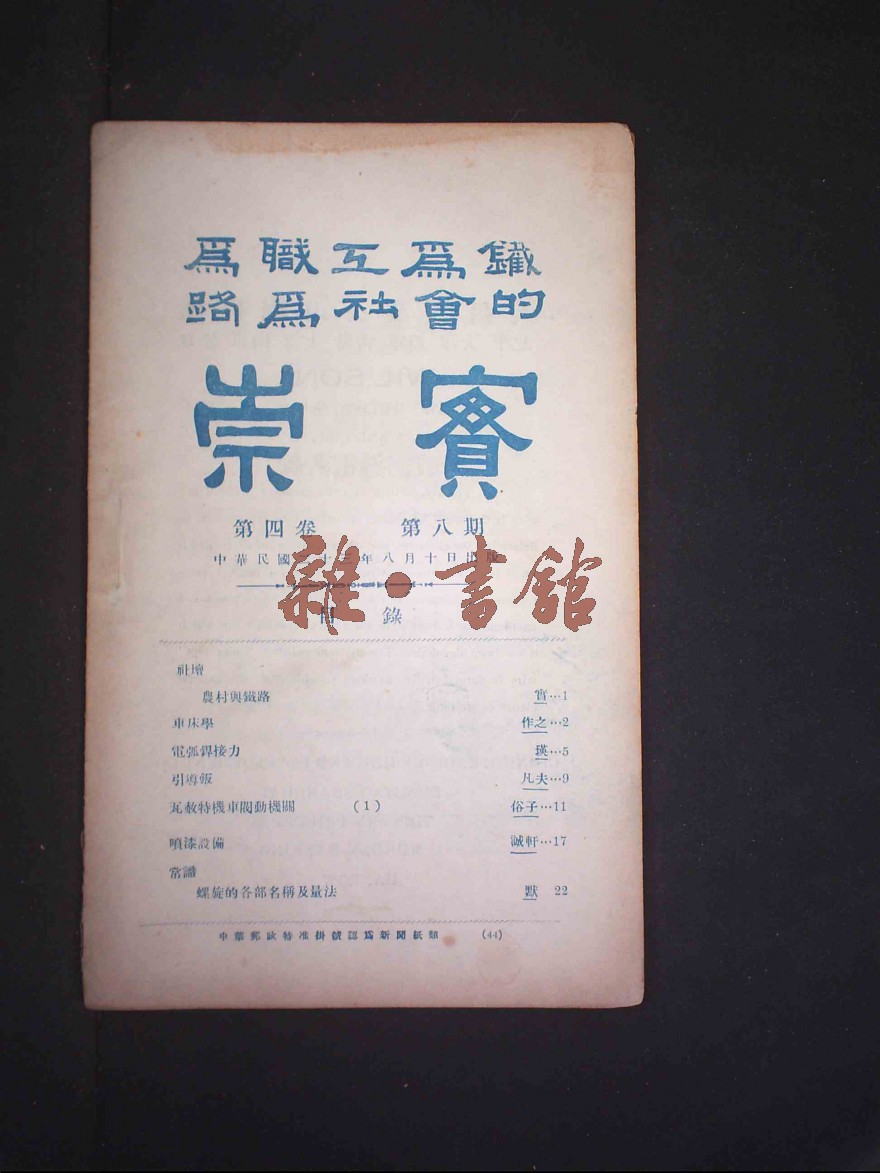 為職工為鐵
路為社會的
崇實
第四卷 第八期
中華民國 十 年八月十日出版
雜·書館
目錄
社壇
農村與鐵路 實…1
車床學 作之…2
電弧銲接力 瑛…5
引導 凡夫…9
瓦赦特機車閥動機關 (1) 俗子…11
噴漆設備 誠軒…17
常識
螺旋的各部名稱及量法 默 22
中華郵政特准掛號認爲新聞紙類 (44)